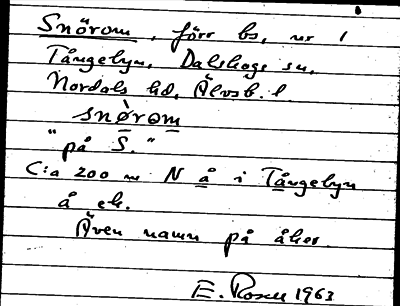 Snörom, förr bs, nr 1
Tångelyn, Dalskogs sn,
Nordals hd, Älvsb. l.
snø̀rom
"på S."
C:a 200 m N å i Tångelyn
å ek.
Även namn på åker
E. Rosell 1963